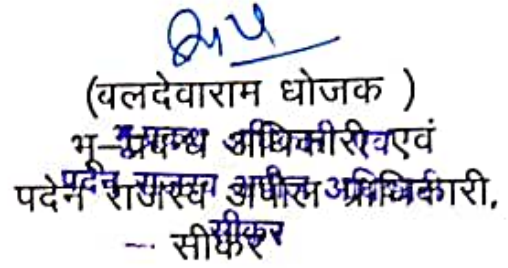 (वलदेवाराम धोजक )
भू–प्रबन्ध अधिकारी एवं
पदेन राजस्व अपील प्राधिकारी,
सीकर